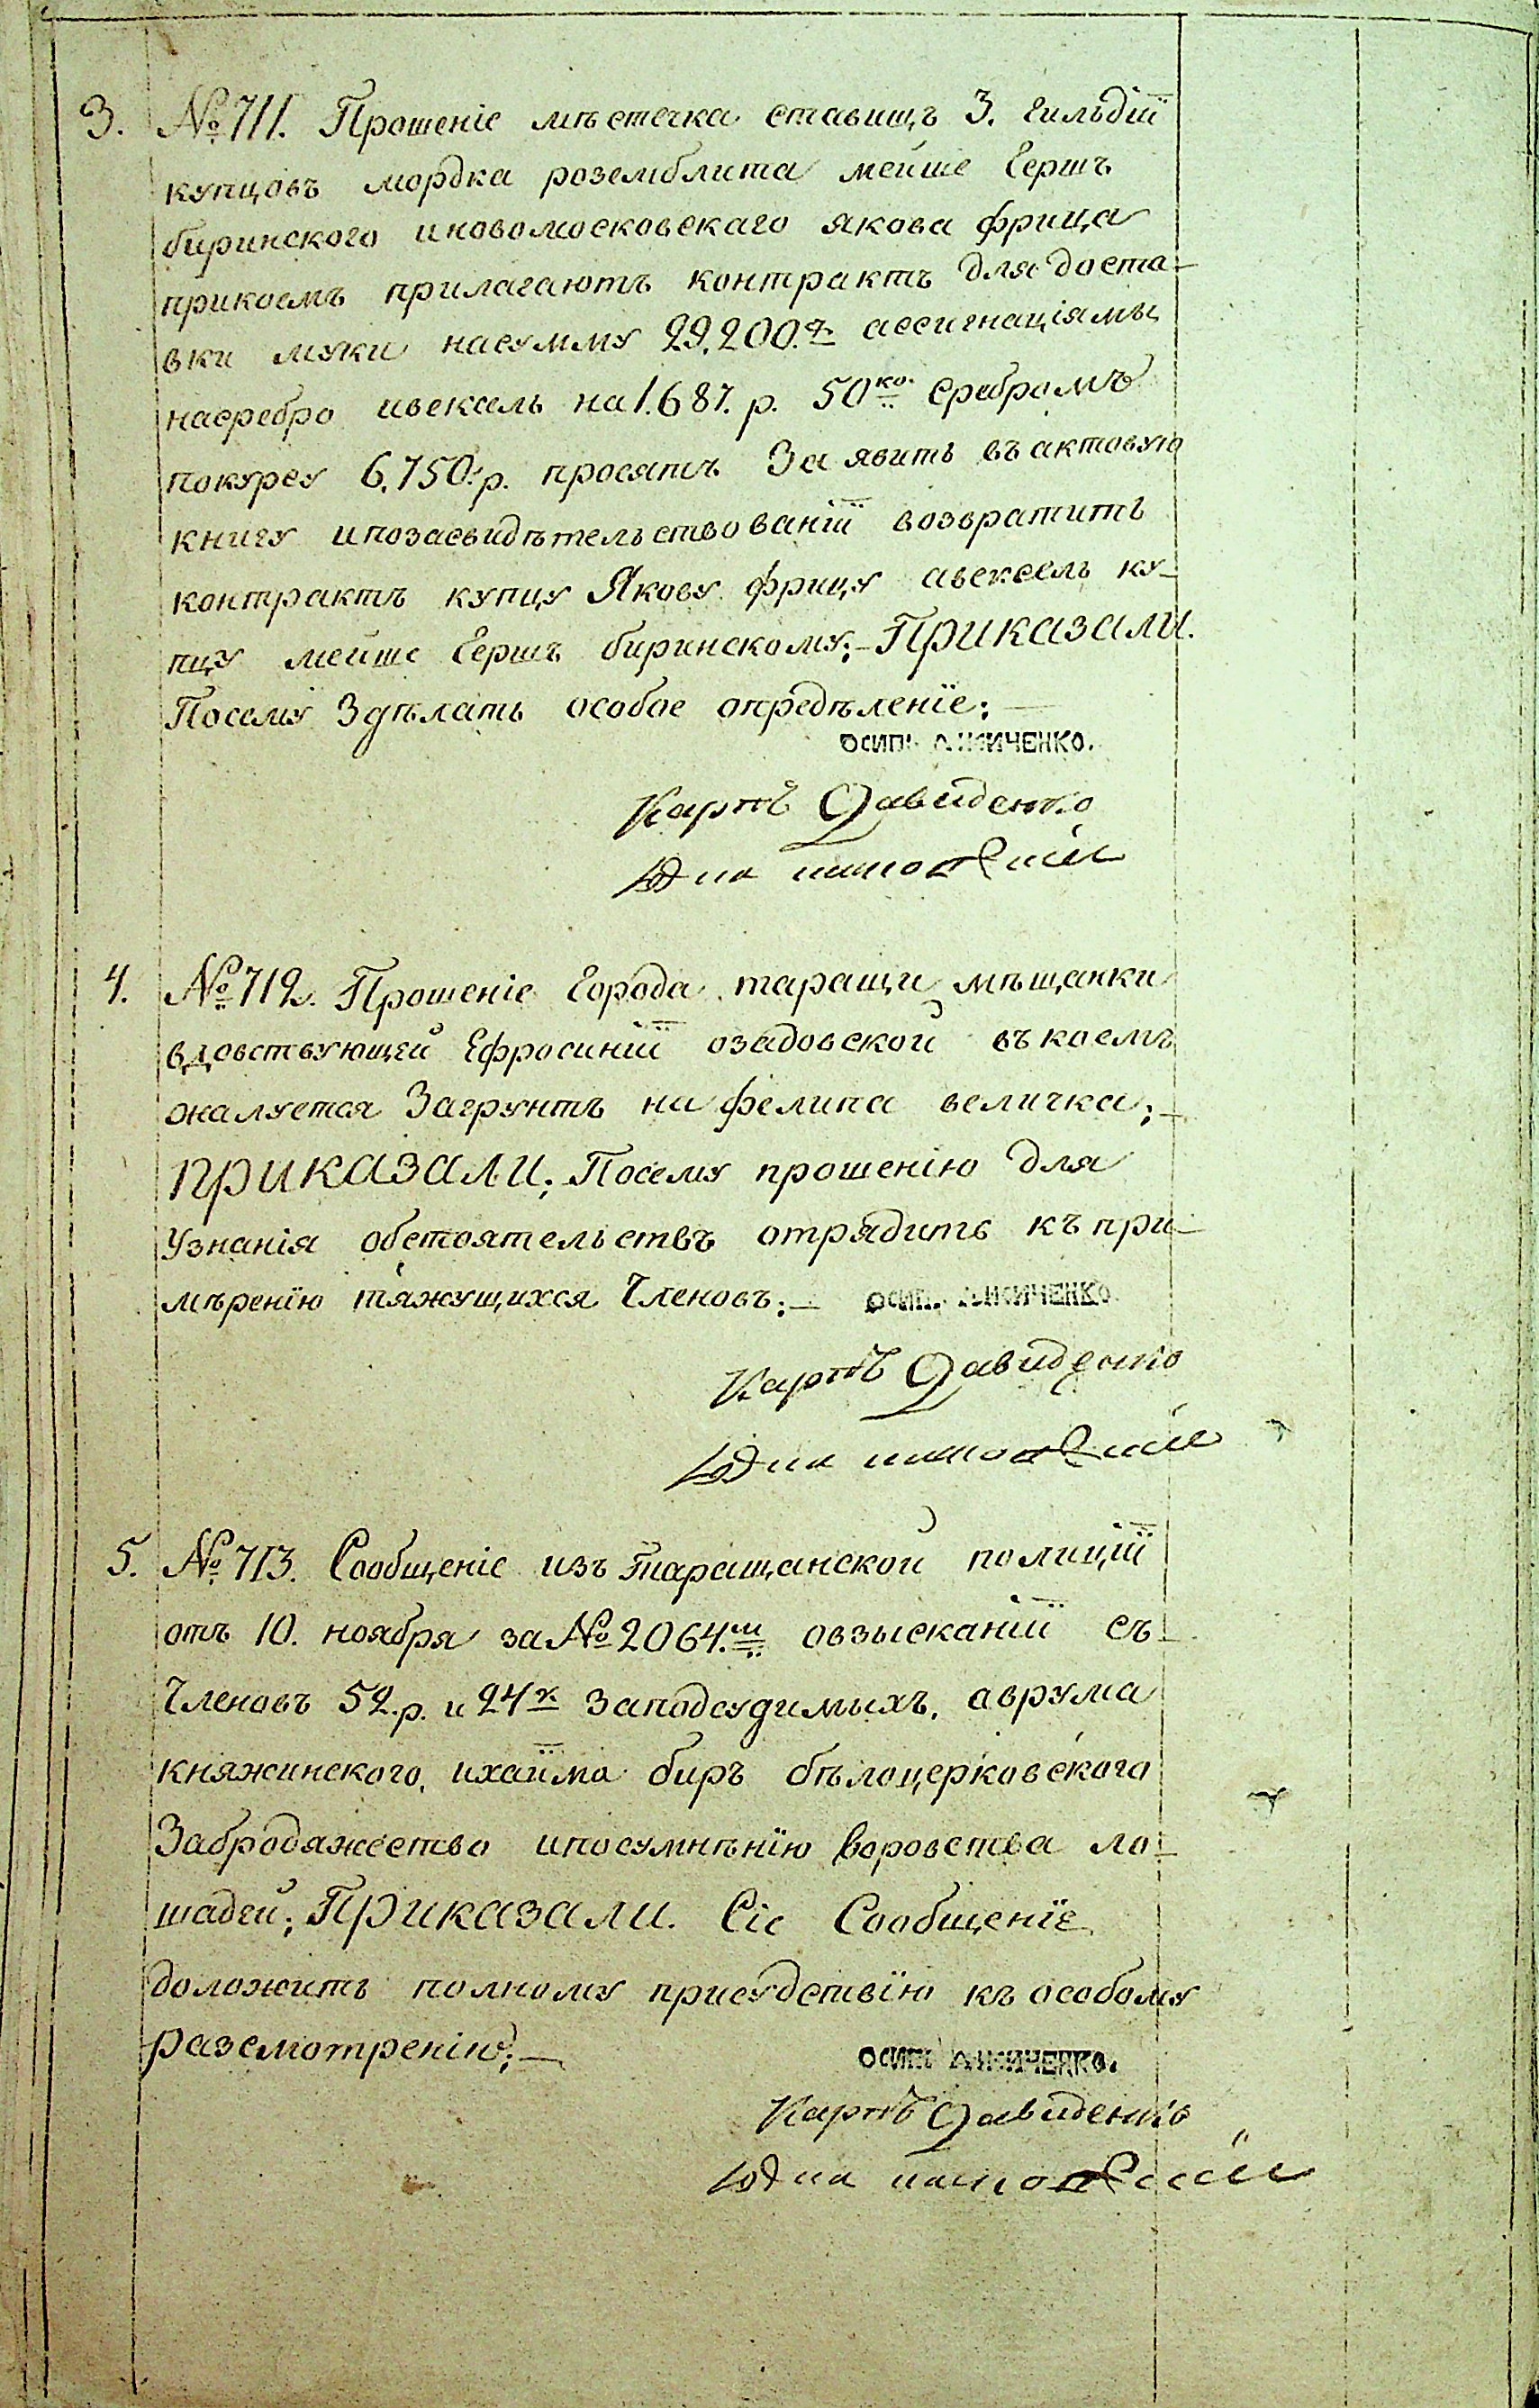 3. №711. Прошеніе мѣстечка ставищъ 3. гильдіи
купцовъ мордка роземблита мейше Гершъ
биринского иновомосковскаго якова фрица
прикоемъ прилагаютъ контрактъ для доста-
вки муки насумму 29.200. ассигнаціямы
насребро ивексль на 1.687. р. 50 ко. сребромъ
покурсу 6.750. р. просятъ Заявить въ актовую
книгу ипозасвидѣтельствованіи возвратить
контрактъ купцу Якову фрицу авексель ку-
пцу мейше Гершъ биринскому;- Приказали.
Посему Здѣлать особое опредѣленіе;-
ОСИПЪ
Карпъ Давиденко
4. №712. Прошеніе Города таращи мѣщанки
вдовствующей Ефросиніи озадовской въ коемъ
жалуется Загрунтъ на фелипа величка;-
Приказали; Посему прошенію для
Узнанія обстоятельствъ отрядить къ при-
мѣренію тяжущихся Членовъ;-
Карпъ Давиденко
5. №713. Сообщеніе изъ Таращанской полиціи
отъ 10. ноября за №2064.м овзысканіи съ-
Членовъ 52. р. и 24 к Заподсудимыхъ. аврума
княжинского, ихаима биръ бѣлоцерковского
Забродяжество ипосумнѣнію воровства ло-
шадей; Приказали. Сіе Сообщеніе
доложить полному присудствію къ особому
разсмотренію;-
ОСИПЪ
Карпъ Давиденко